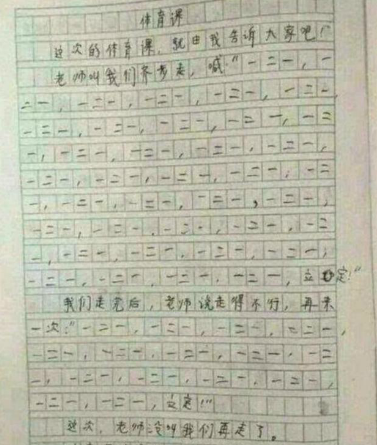 体育课
这次的体育课,就由我告诉大家吧!
老师叫我们齐步走,喊:"一二一,一
二一,一二一,一二一,一二一,一二一,
一二一,一二一,一二一,一二一,一二
一,一二一,一二一,一二一,一二一,
一二一,一二一,一二一,一二一,一二
一,一二一,一二一,一二一,一二一,
一二一,一二一,一二一,一二一,一二
一,一二一,一二一,一二一,一二一,
一二一,一二一,一二一,一二一,立定!"
我们走完后,老师说走得不行,再来
一次:"一二一,一二一,一二一,一二一,
一二一,一二一,一二一,一二一,一二
一,一二一,一二一,一二一,一二一,
一二一,一二一,立定!"
这次,老师没叫我们再走了。